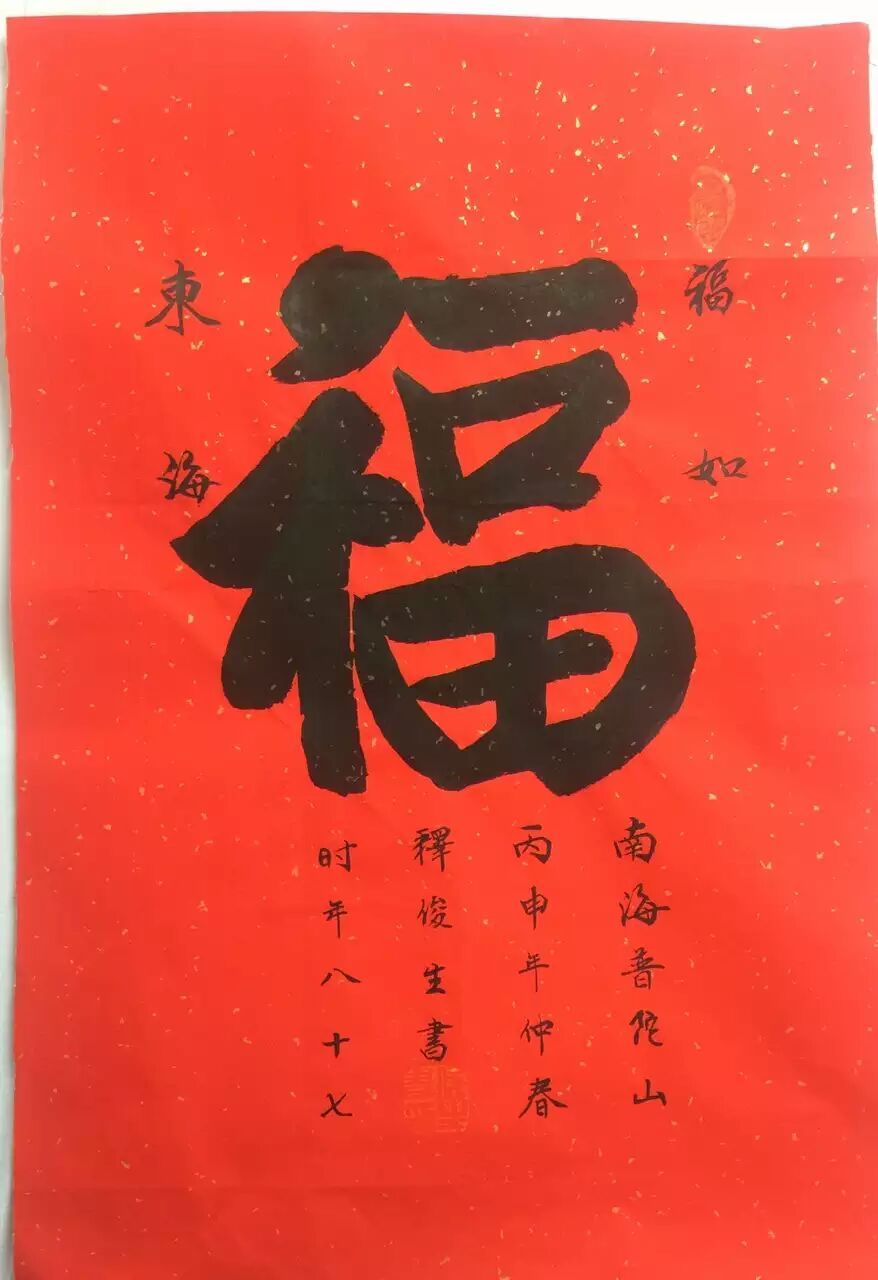 福
福如
東海
南海普陀山
丙申年仲春
釋俊生書
时年八十七